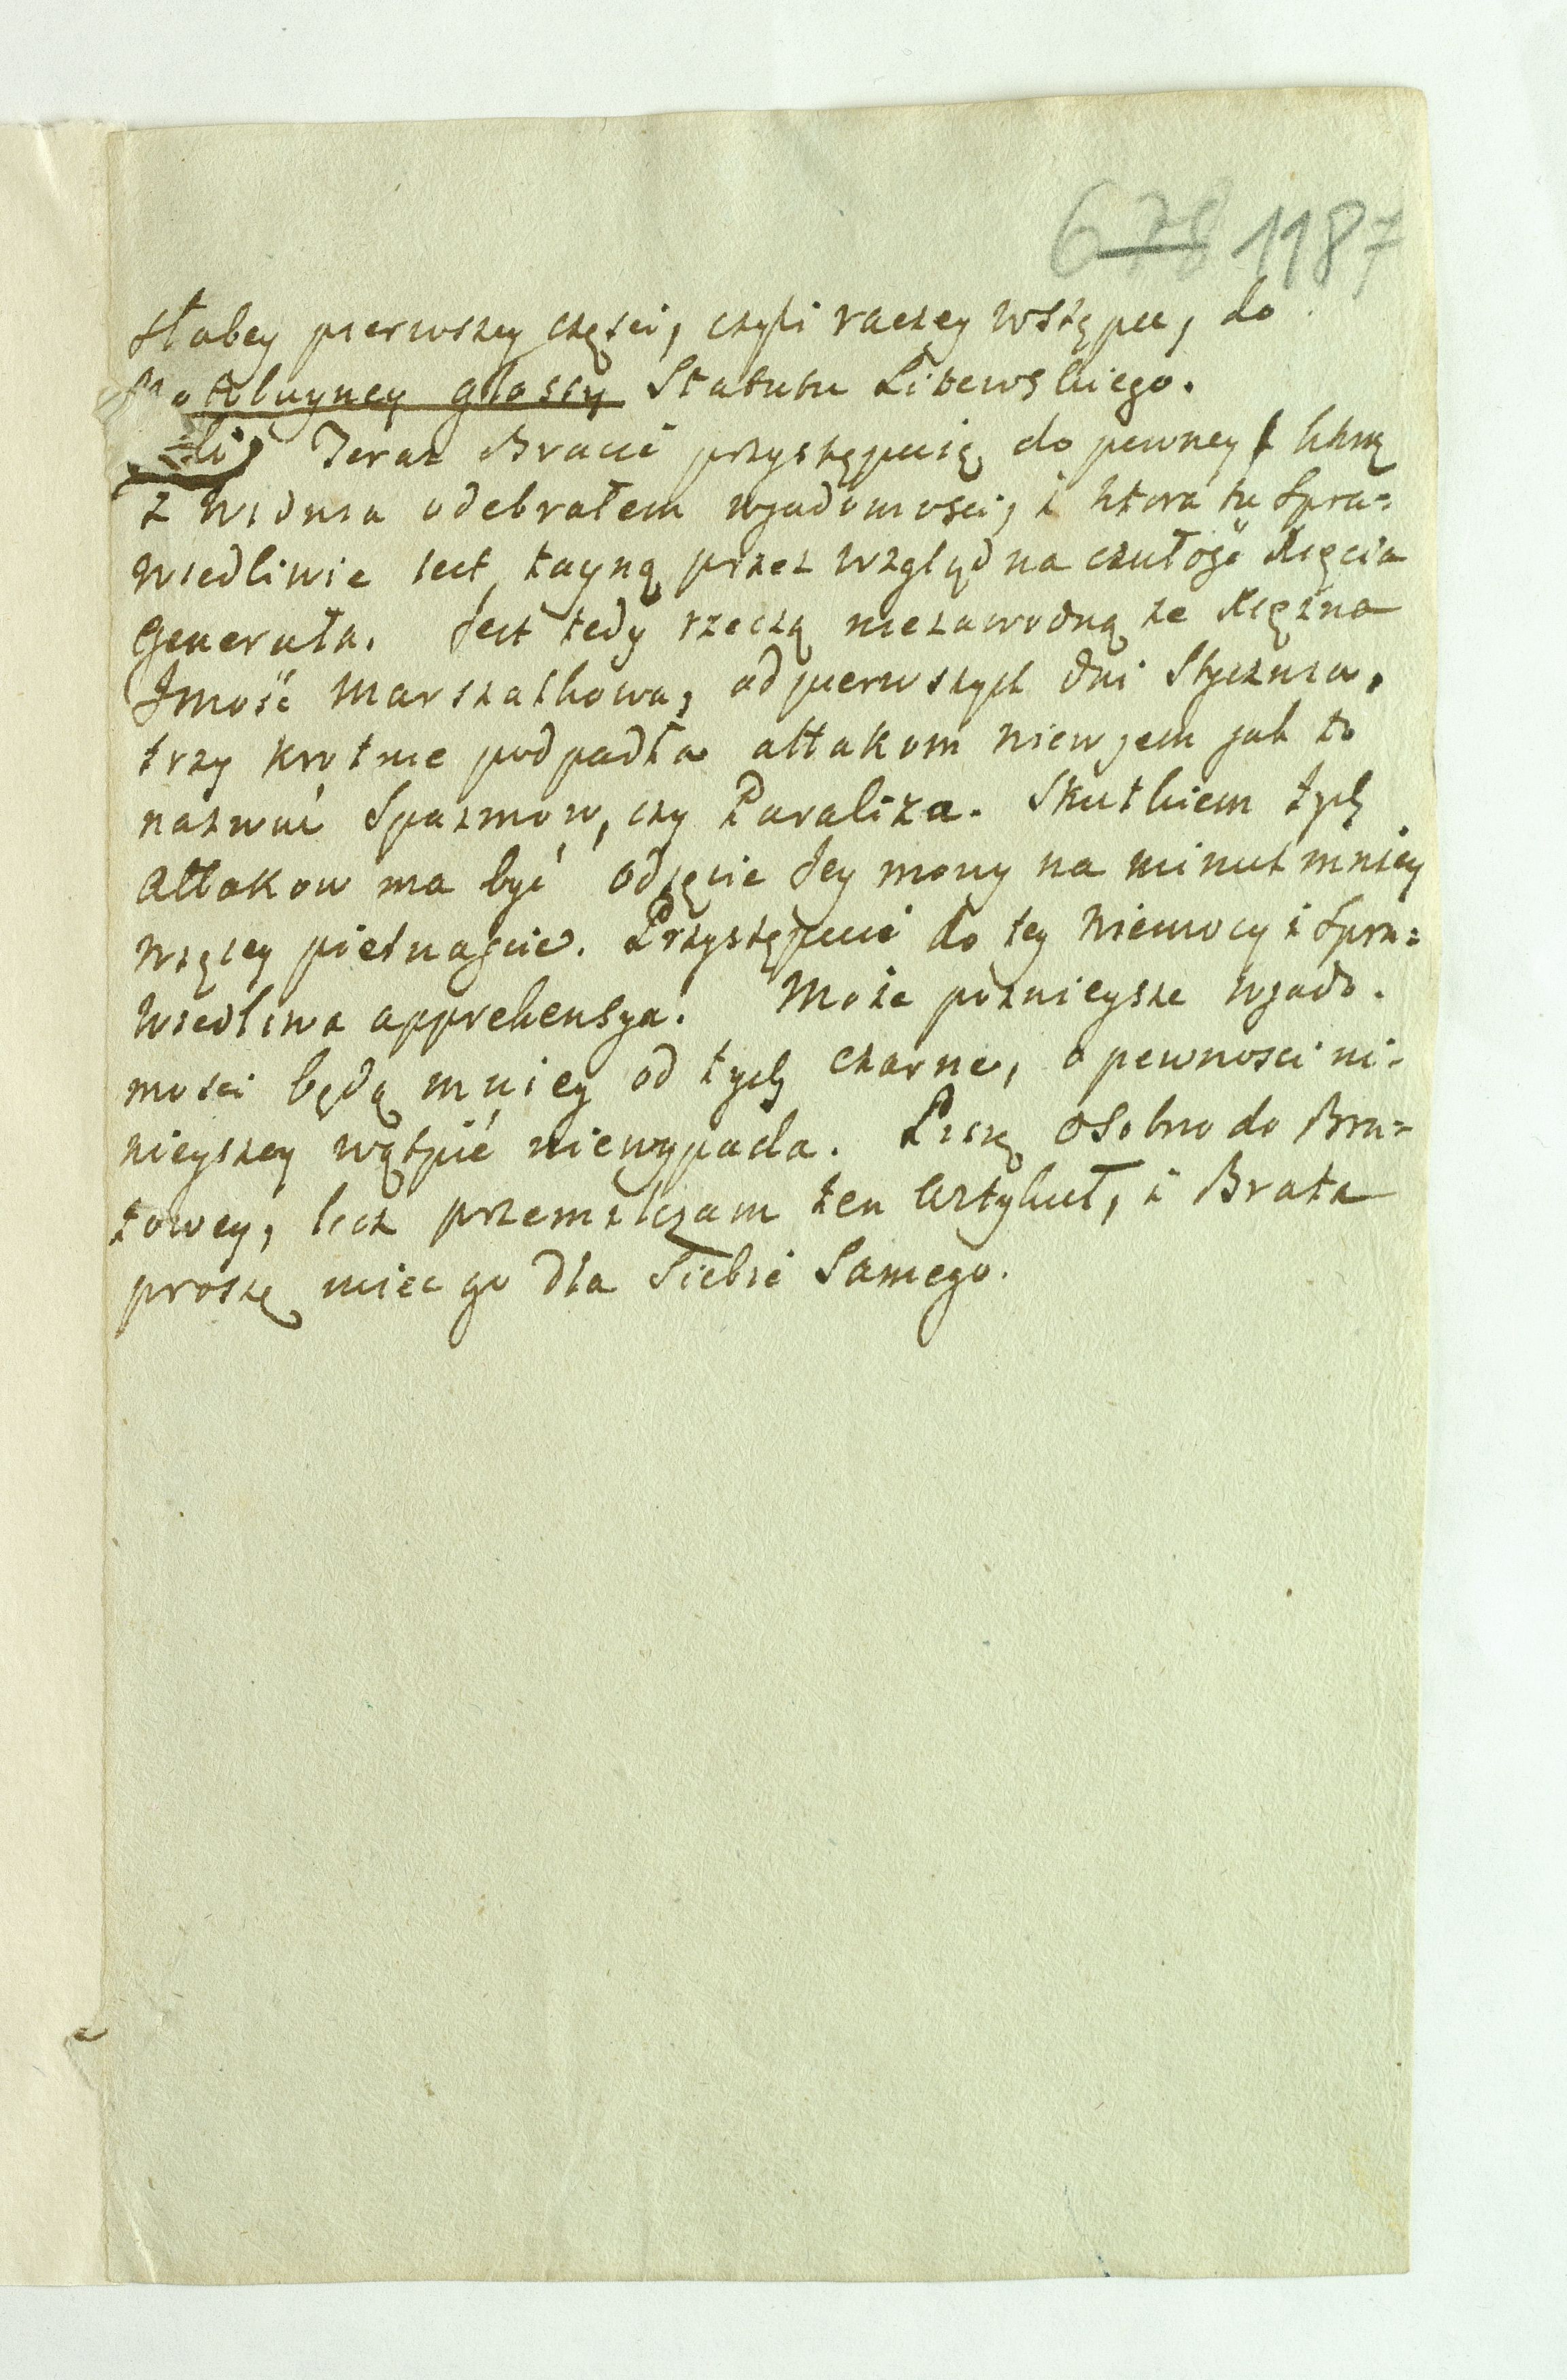 678 1187
słabey pierwszey części, czyli raczey wstępu, do
glossy Statutu Litewskiego.
Teraz Bracie przystępuię do pewney, którą
z Widnia odebrałem wjadomości, i która tu spra=
wiedliwie iest tayną przez wzgląd na czułość Xięcia
Generała. Jest tedy rzeczą niezawodną że Xiężna
Jmość Marszałkowa, od pierwszych dni Stycznia,
trzy krotnie podpadła attakom niewjem jak to
nazwać Spazmow, czy Paraliża. Skutkiem tych
attakow ma być odjęcie Jey mowy na minut mniey
więcey pietnaście. Przystępuie do tey niemocy i spra=
wiedliwa apprehensya. Może poznieysze wjado=
mości będą mniey od tych czarne, o pewności ni=
nieyszey wątpić niewypada. Piszę osobno do Bra=
towey, lecz przemilczam ten Artykuł, i Brata
proszę miec go dla Siebie Samego.